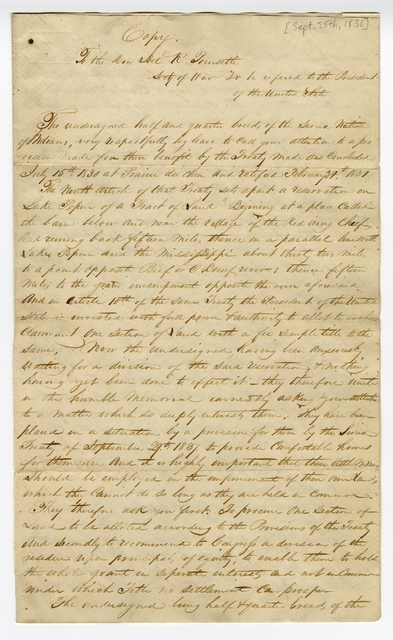 [Sept. 25th, 1838]
Copy.
To the Hon Joel R. Poinsett
Secty of War To be refered to the President
of the United States
The undersigned half and quarter breeds of the Sioux Nation
of Indians, very respectfully beg leave to call your attention to a pro
vision made for their benefit by the Treaty made and Concluded
July 15th 1830 at Prairie du chien and ratified February 24th 1831
The Ninth article of that Treaty sets apart a reservation on
Lake Pepin of a Tract of Land Begining at a place Called
the barn below and near the village of the Red Wing Chief
And running back fifteen Miles, thence in a parallel line with
Lake Pepin and the Mississippi about thirty two miles
to a point opposite Beef or O Boeuf river; thence fifteen
Miles to the encampment opposite the river aforesaid
And in Article 10th of the Same Treaty the President of the United
States is invested with full power & authority to allot to each
Claimant One Section of Land with a fee simple title to the
same. Now the undersigned having been anxiously
waiting for a division of the Said reservation & nothing
having yet been done to effect it they therefore unite
in this humble Memorial earnestly asking your attention
to a matter which so deeply interests them. They have been
placed in a situation by a provision for them by the Sioux
Treaty of September 29th 1837 to provide Comfortable homes
for themselves And it is highly important that their
should be employed in the improvement of their own lands
which they Cannot do so long as they are held in Common.
They therefore ask you first. To procure One Section of
Land to be allotted according to the Provisions of the Treaty
And Secondly to recommend to Congress a division of the
residue upon principals of equity, to enable them to hold
the whole grant in seperate interests and not in Common
under which Title no settlement Can prosper
The undersigned being half & quarter breeds of the